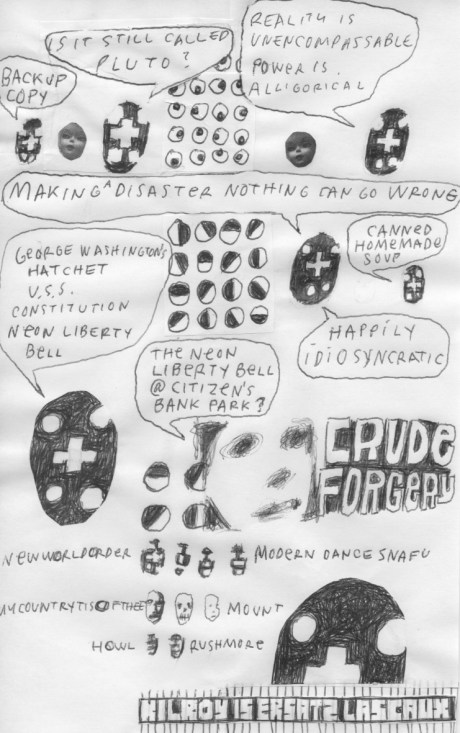 REALITY IS
UNENCOMPASSABLE
POWER IS.
ALLIGORICAL
IS IT STILL CALLED
PLUTO?
BACKUP
COPY
MAKING A DISASTER NOTHING CAN GO WRONG
CANNED
HOMEMADE
SOUP
GEORGE WASHINGTON'S
HATCHET
U.S.S.
CONSTITUTION
NEON LIBERTY
BELL
HAPPILY
IDIOSYNCRATIC
THE NEON
LIBERTY BELL
@ CITIZEN'S
BANK PARK?
CRUDE
FORGERY
NEWWORLDORDER MODERN DANCE SNAFU
MYCOUNTRYTISOFTHEE MOUNT
HOWL RUSHMORE
KILROY IS ERSATZ LASCAUX